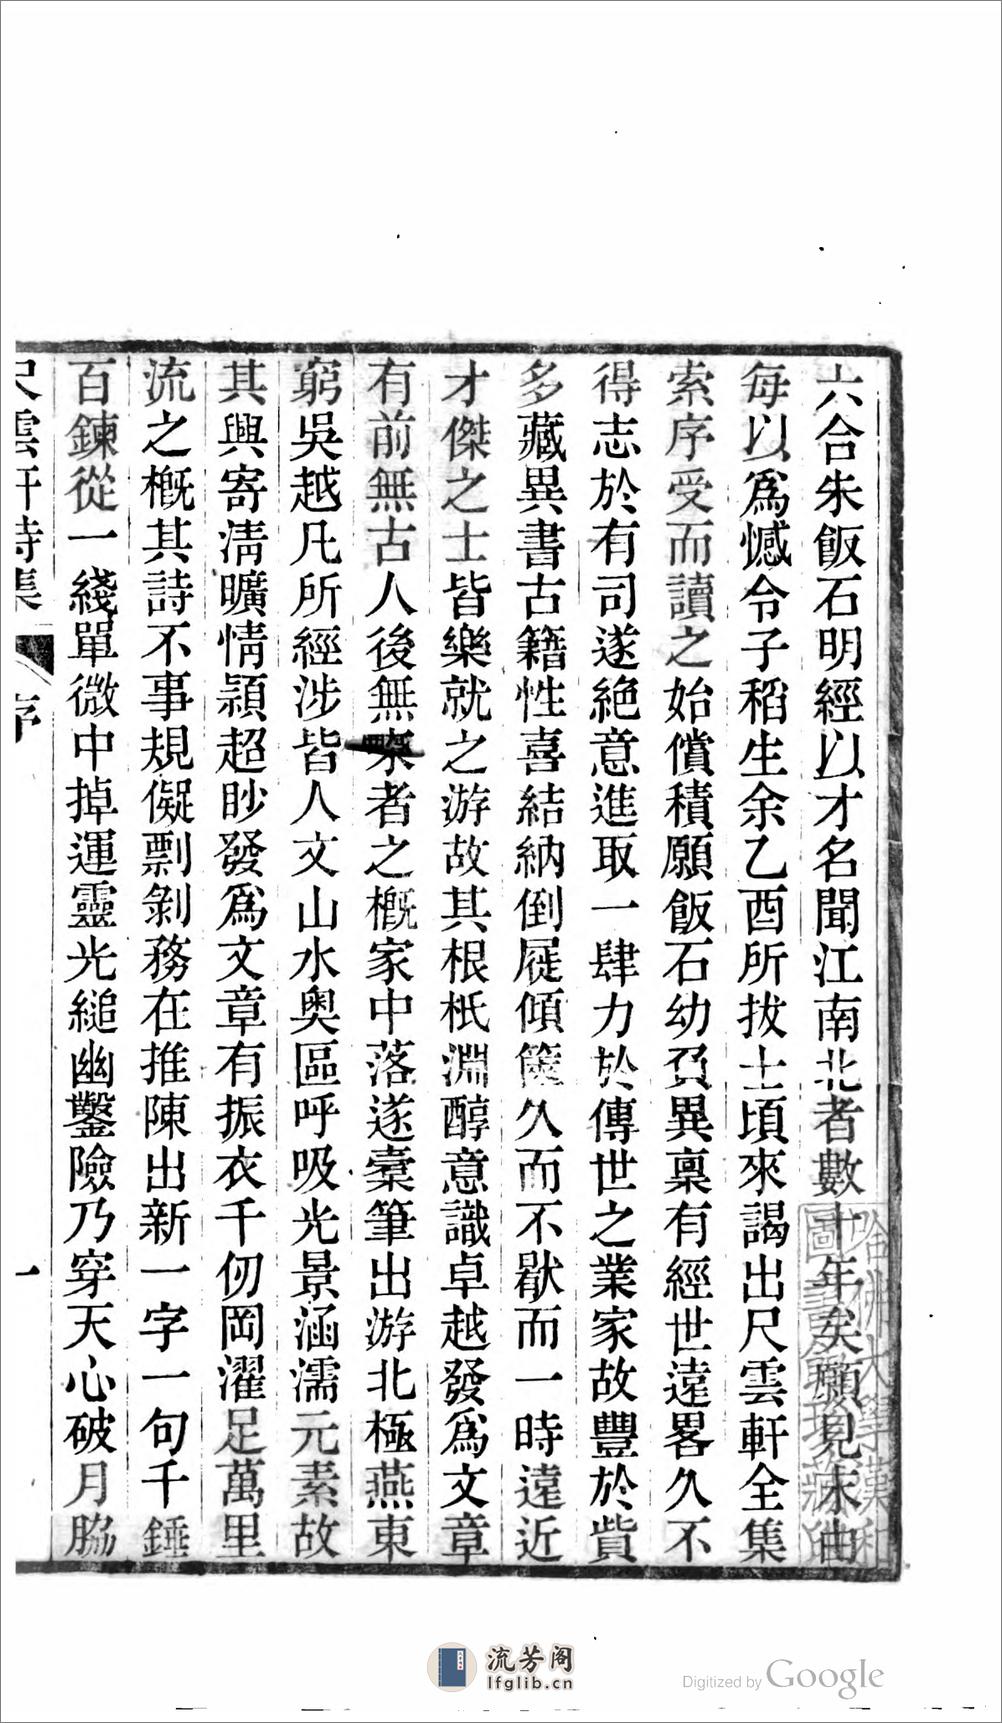 六合朱飯石明經以才名聞江南北者數十年矣願見末由
每以爲憾令子稻生余乙酉所拔士頃來謁出尺雲軒全集
索序受而讀之始償積願飯石幼負異稟有經世遠畧久不
得志於有司遂絕意進取一肆力於傳世之業家故豐於貲
多藏異書古籍性喜結納倒屣傾筐久而不厭而一時遠近
才傑之士皆樂就之游故其根柢淵醇意識卓越發爲文章
有前無古人後無來者之槪家中落遂橐筆出游北極燕東
窮吳越凡所經涉皆人文山水奧區呼吸光景涵濡元素故
其興寄淸曠情頴超眇發爲文章有振衣千仞岡濯足萬里
流之槪其詩不事規儗剽剝務在推陳出新一字一句千錘
百鍊從一綫單微中掉運靈光縋幽鑿險乃穿天心破月脇
尺雲軒詩集 序 一
哈佛大學漢和
圖書館珍藏印
流芳阁
lfglib.cn
Digitized by Google